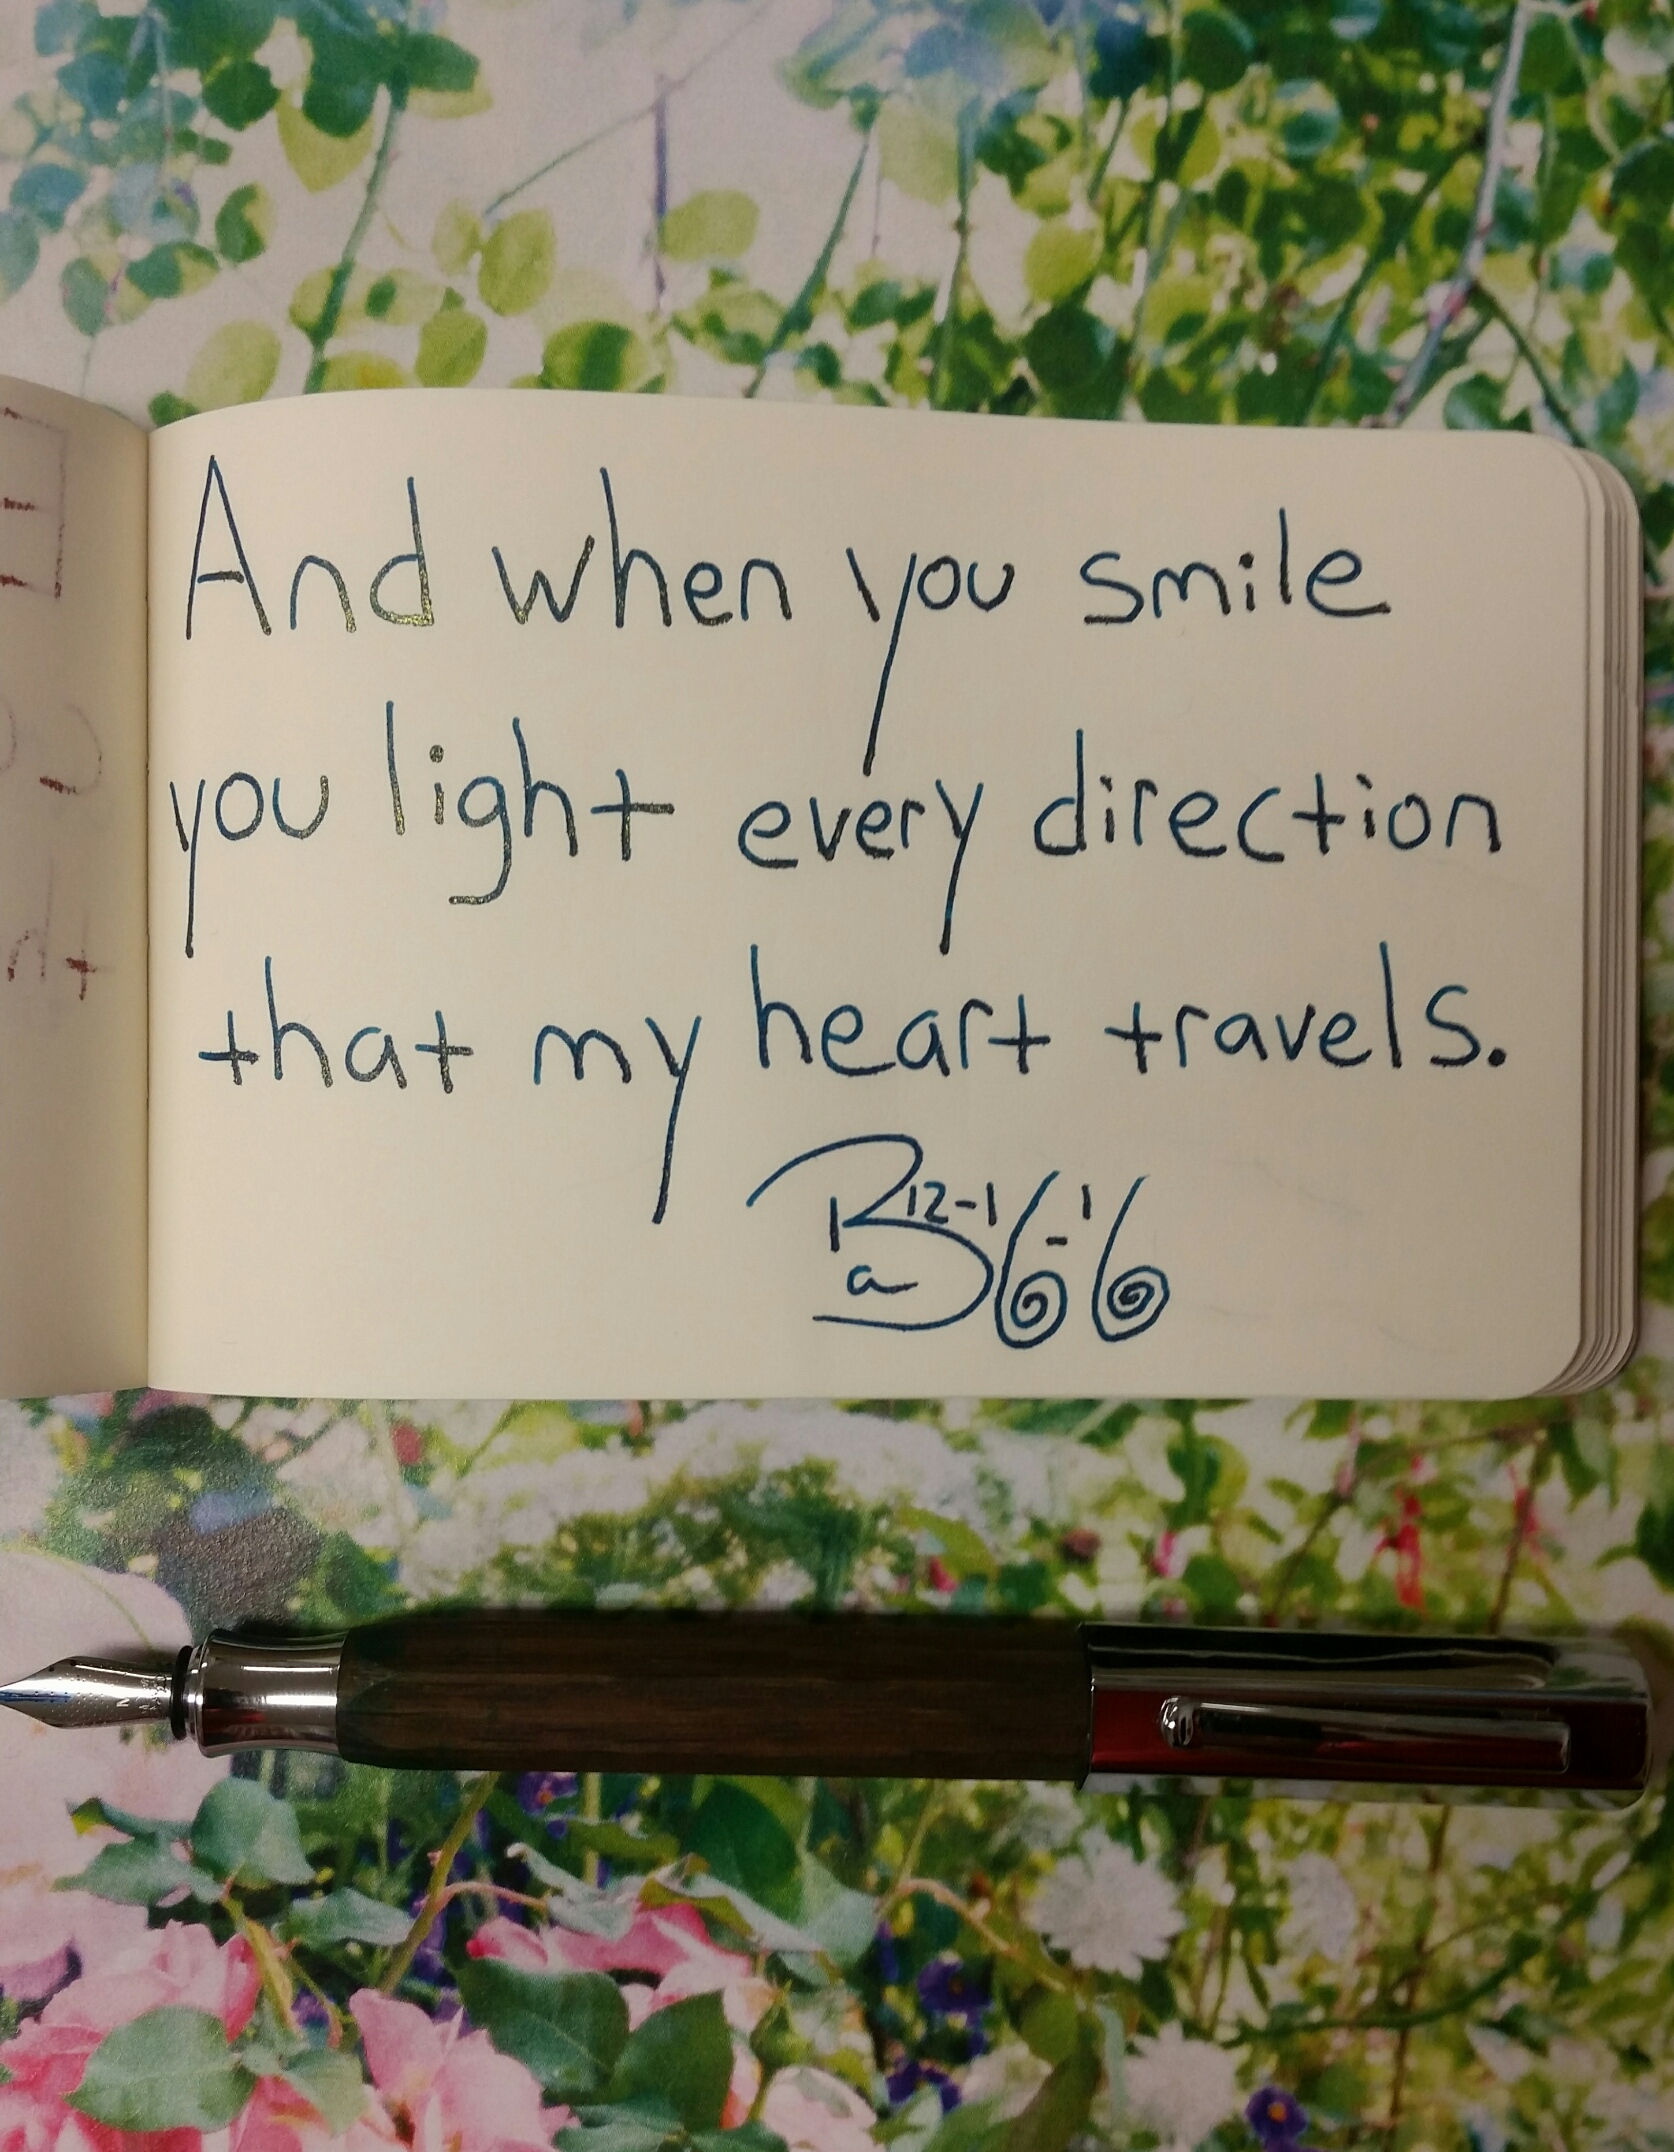 And when you smile
you light every direction
that my heart travels.